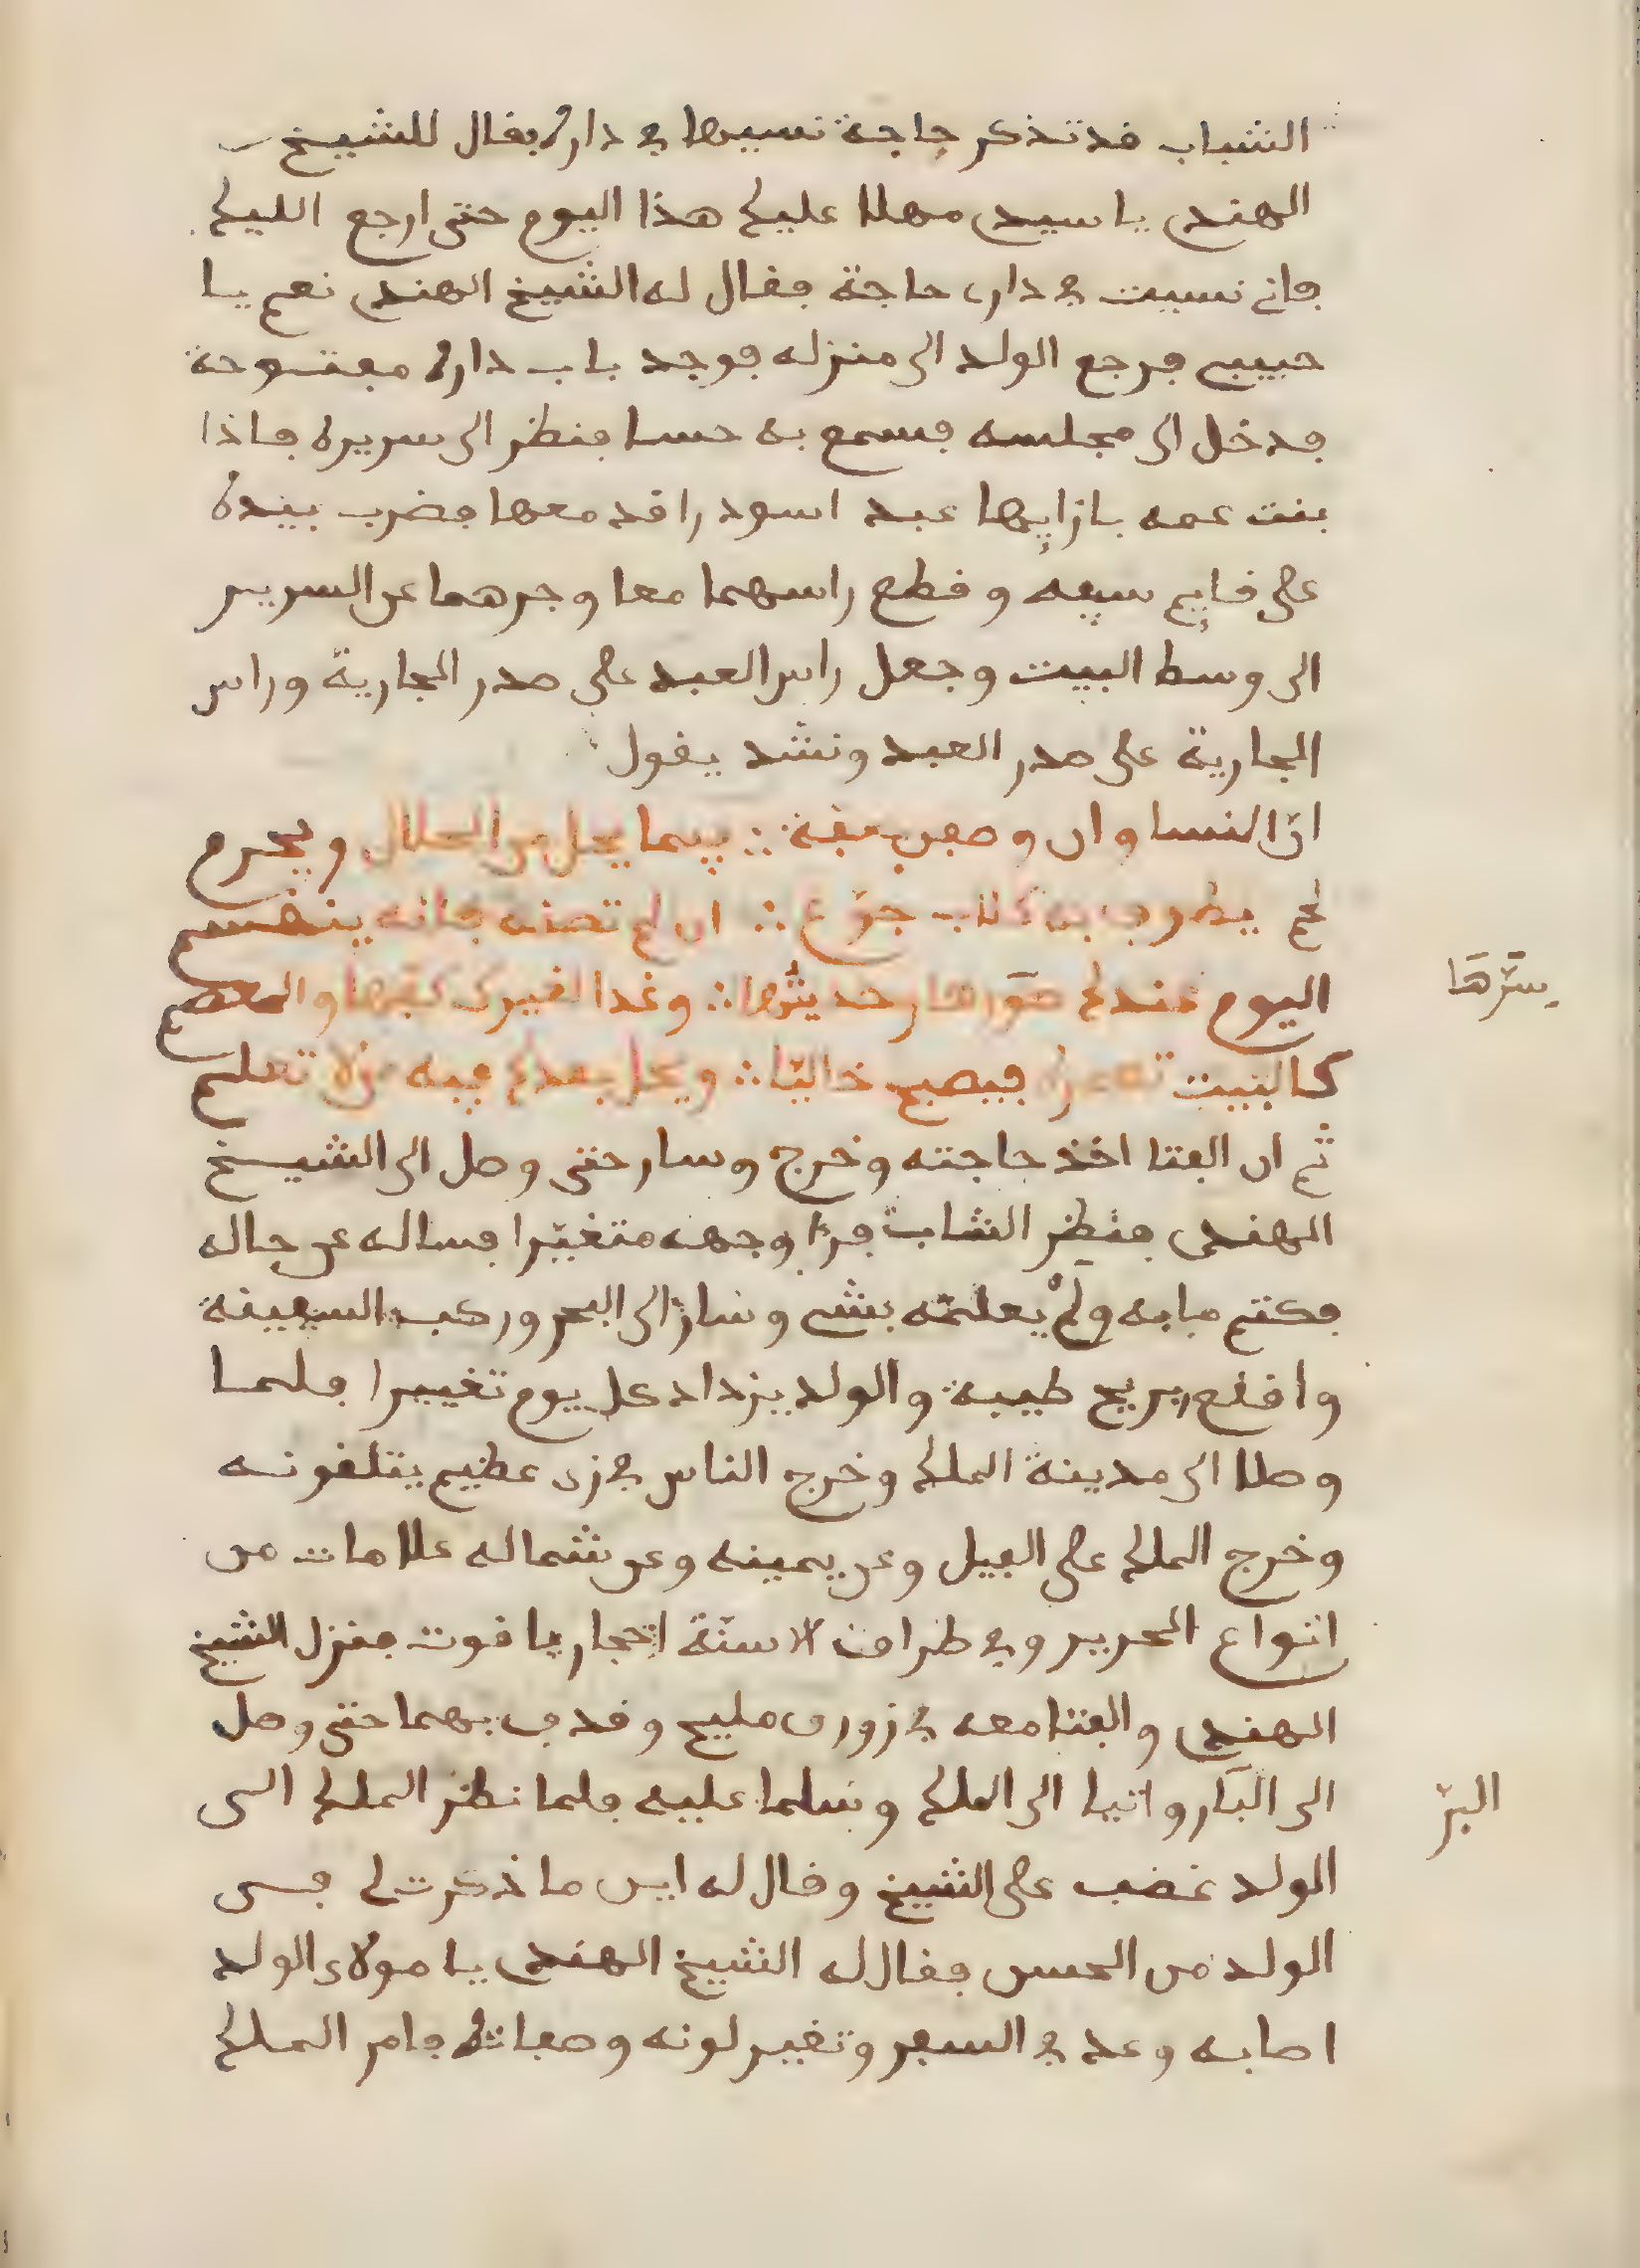 الشباب قد تذكر حاجة نسيها في داره فقال للشيخ
الهندي يا سيدي مهلا عليك هذا اليوم حتى ارجع اليك
فاني نسيت في داري حاجة فقال له الشيخ الهندي نعم يا
حبيبي فرجع الولد الى منزله فوجد باب داره مفتوحة
فدخل الى مجلسه فسمع به حسا فنظر الى سريره فاذا
بنت عمه بازايها عبد اسود راقد معها فضرب بيده
على قايم سيفه وقطع راسهما معا وجرهما عن السرير
الى وسط البيت وجعل راس العبد على صدر الجارية وراس
الجارية على صدر العبد ونشد يقول
انّ النسا وان وصفن بعفة فيما يحل من الحلال ويحرم
لحم يطوف به كلاب جوّع ان لم تصنه فانه ينقسم
اليوم عندك سرها وحديثها وغدا لغيرك كفها والمعصم
كالبيت تعمره فيصبح خاليًا ويحل بعدك فيه من لا تعلم
ثم ان الفتا اخذ حاجته وخرج وسار حتى وصل الى الشيخ
الهندي فنظر الشاب فرءا وجهه متغيّرا فساله عن حاله
فكتم ما به ولم يعلمه بشي وسارا الى البحر وركب السفينة
واقلع بريح طيبة والولد يزداد كل يوم تغييرا فلما
وصلا الى مدينة الملك وخرج الناس في زي عظيم يتلقونه
وخرج الملك على الفيل وعن يمينه وعن شماله علامات من
انواع الحرير وفي طراف الاسنّة احجار ياقوت فنزل الشيخ
الهندي والفتا معه في زورق مليح وقدف بهما حتى وصل
الى البار واتيا الى الملك وسلما عليه فلما نظر الملك الى
الولد غضب على الشيخ وقال له اين ما ذكرت لي في
الولد من الحسن فقال له الشيخ الهندي يا مولاي الولد
اصابه وعد في السفر وتغير لونه وصفاته فامر الملك
سِتْرهَا
البرّ